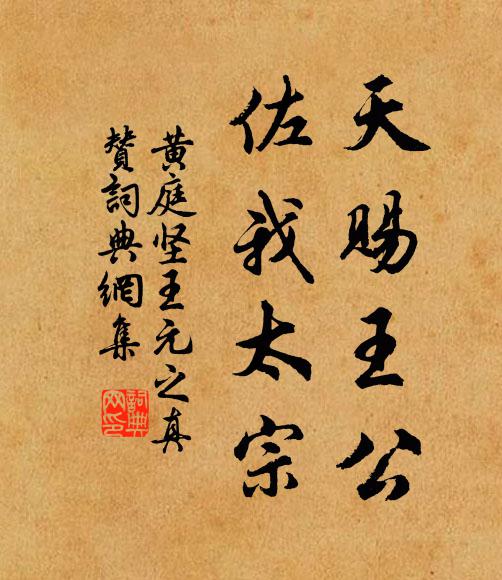 天賜王公
佐我太宗
黄庭坚王元之真
贊詞典網集
詞典网印